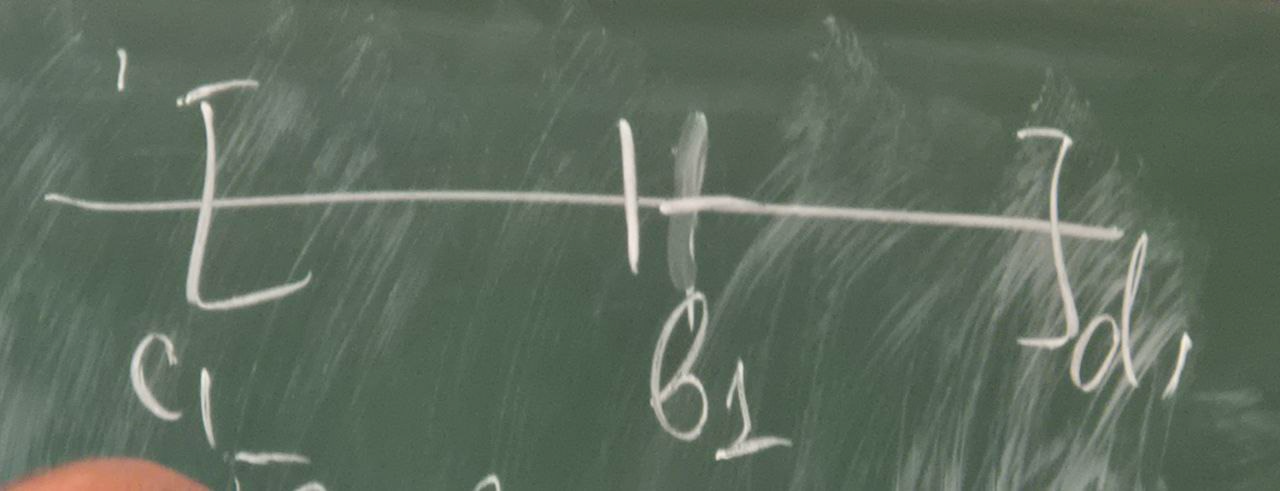 [ ]
c₁ b₁ d₁